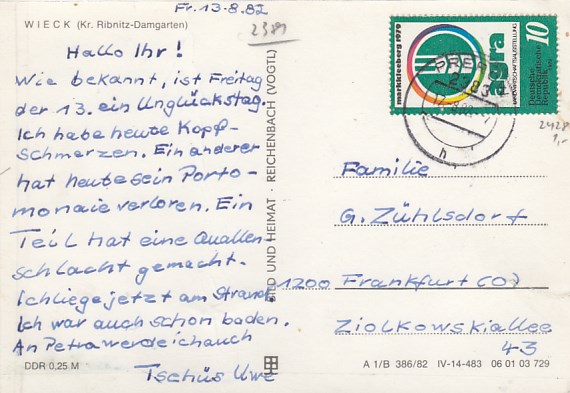 Fr. 13-8.82
WIECK (Kr. Ribnitz-Damgarten)
2389
Hallo Ihr!
Wie bekannt, ist Freitag
der 13. ein Unglückstag.
Ich habe heute Kopf-
schmerzen. Ein anderer
hat heute sein Porto-
monaie verloren. Ein
Teil hat eine Quallen
schlacht gemacht.
Ich liege jetzt am Strand.
Ich war auch schon baden.
An Petra werde ich auch
Tschüs Uwe
DDR 0,25 M
BILD UND HEIMAT · REICHENBACH (VOGTL)
markkleeberg 1979
agra
LANDWIRTSCHAFTSAUSSTELLUNG
10
Deutsche
Demokratische
Republik
PREROW
2383
h
2428
1,-
Familie
G. Zühlsdorf
1200 Frankfurt (O)
Ziolkowskiallee
43
A 1/B 386/82 IV-14-483 06 01 03 729